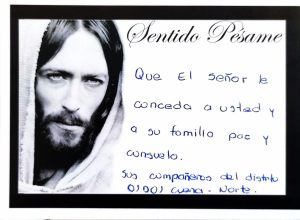 Sentido Pésame
Que El Señor le
conceda a usted y
a su familia paz y
consuelo.
Sus compañeros del distrito
01D01 Cuenca - Norte.